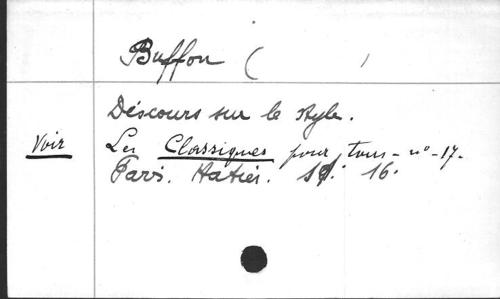 Buffon ( )
Discours sur le style.
Voir Les Classiques pour tous - n° - 17.
Paris. Hatier. 16°